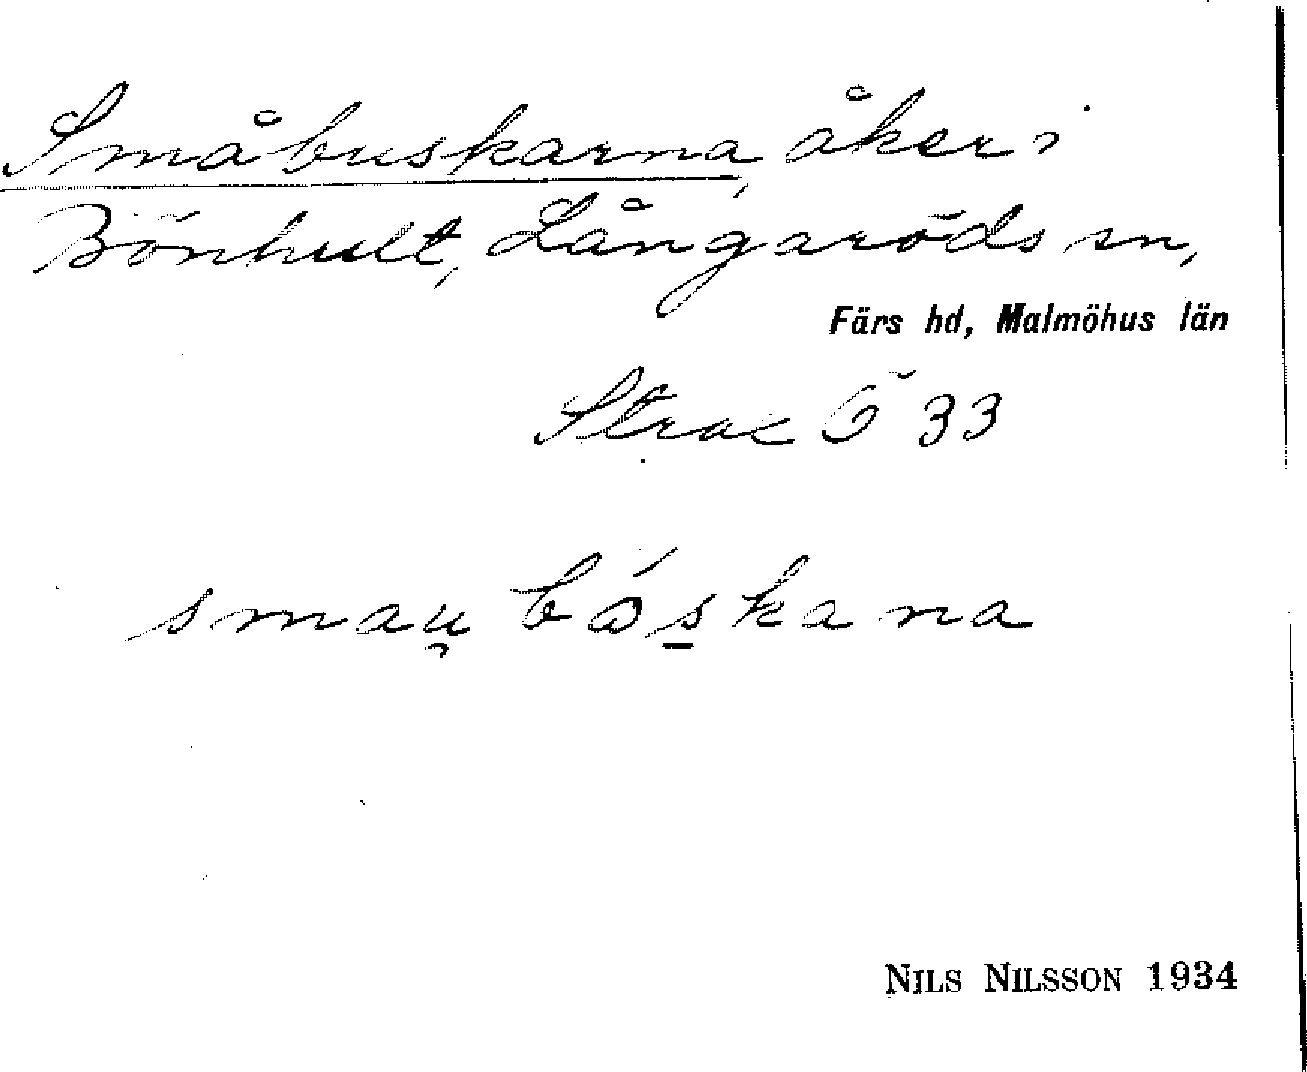 Småbuskarna, åker i
Bönhult, Långaröds sn,
Färs hd, Malmöhus län
Strax Ö 33
smau̯ bóskana
NILS NILSSON 1934